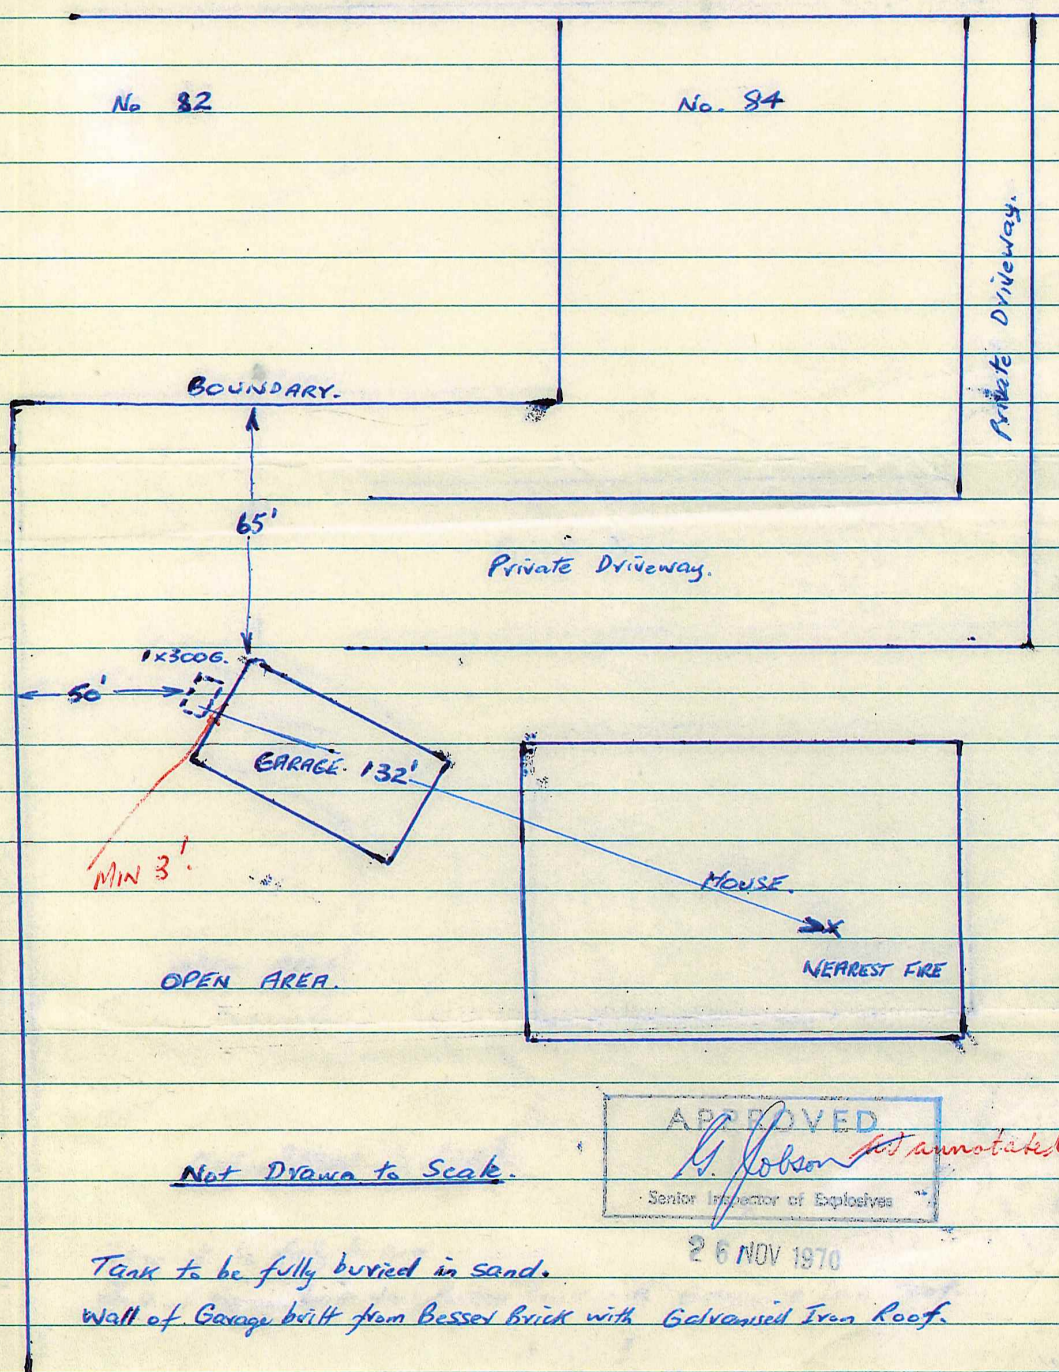 No 82
No. 84
Private Driveway.
BOUNDARY.
65'
Private Driveway.
1x300G.
50'
GARAGE.
132'
MIN 3'.
HOUSE.
X
NEAREST FIRE
OPEN AREA.
APPROVED
G. Jobson as annotated
Senior Inspector of Explosives
26 NOV 1970
Not Drawn to Scale.
Tank to be fully buried in sand.
Wall of Garage built from Besser Brick with Galvanised Iron Roof.